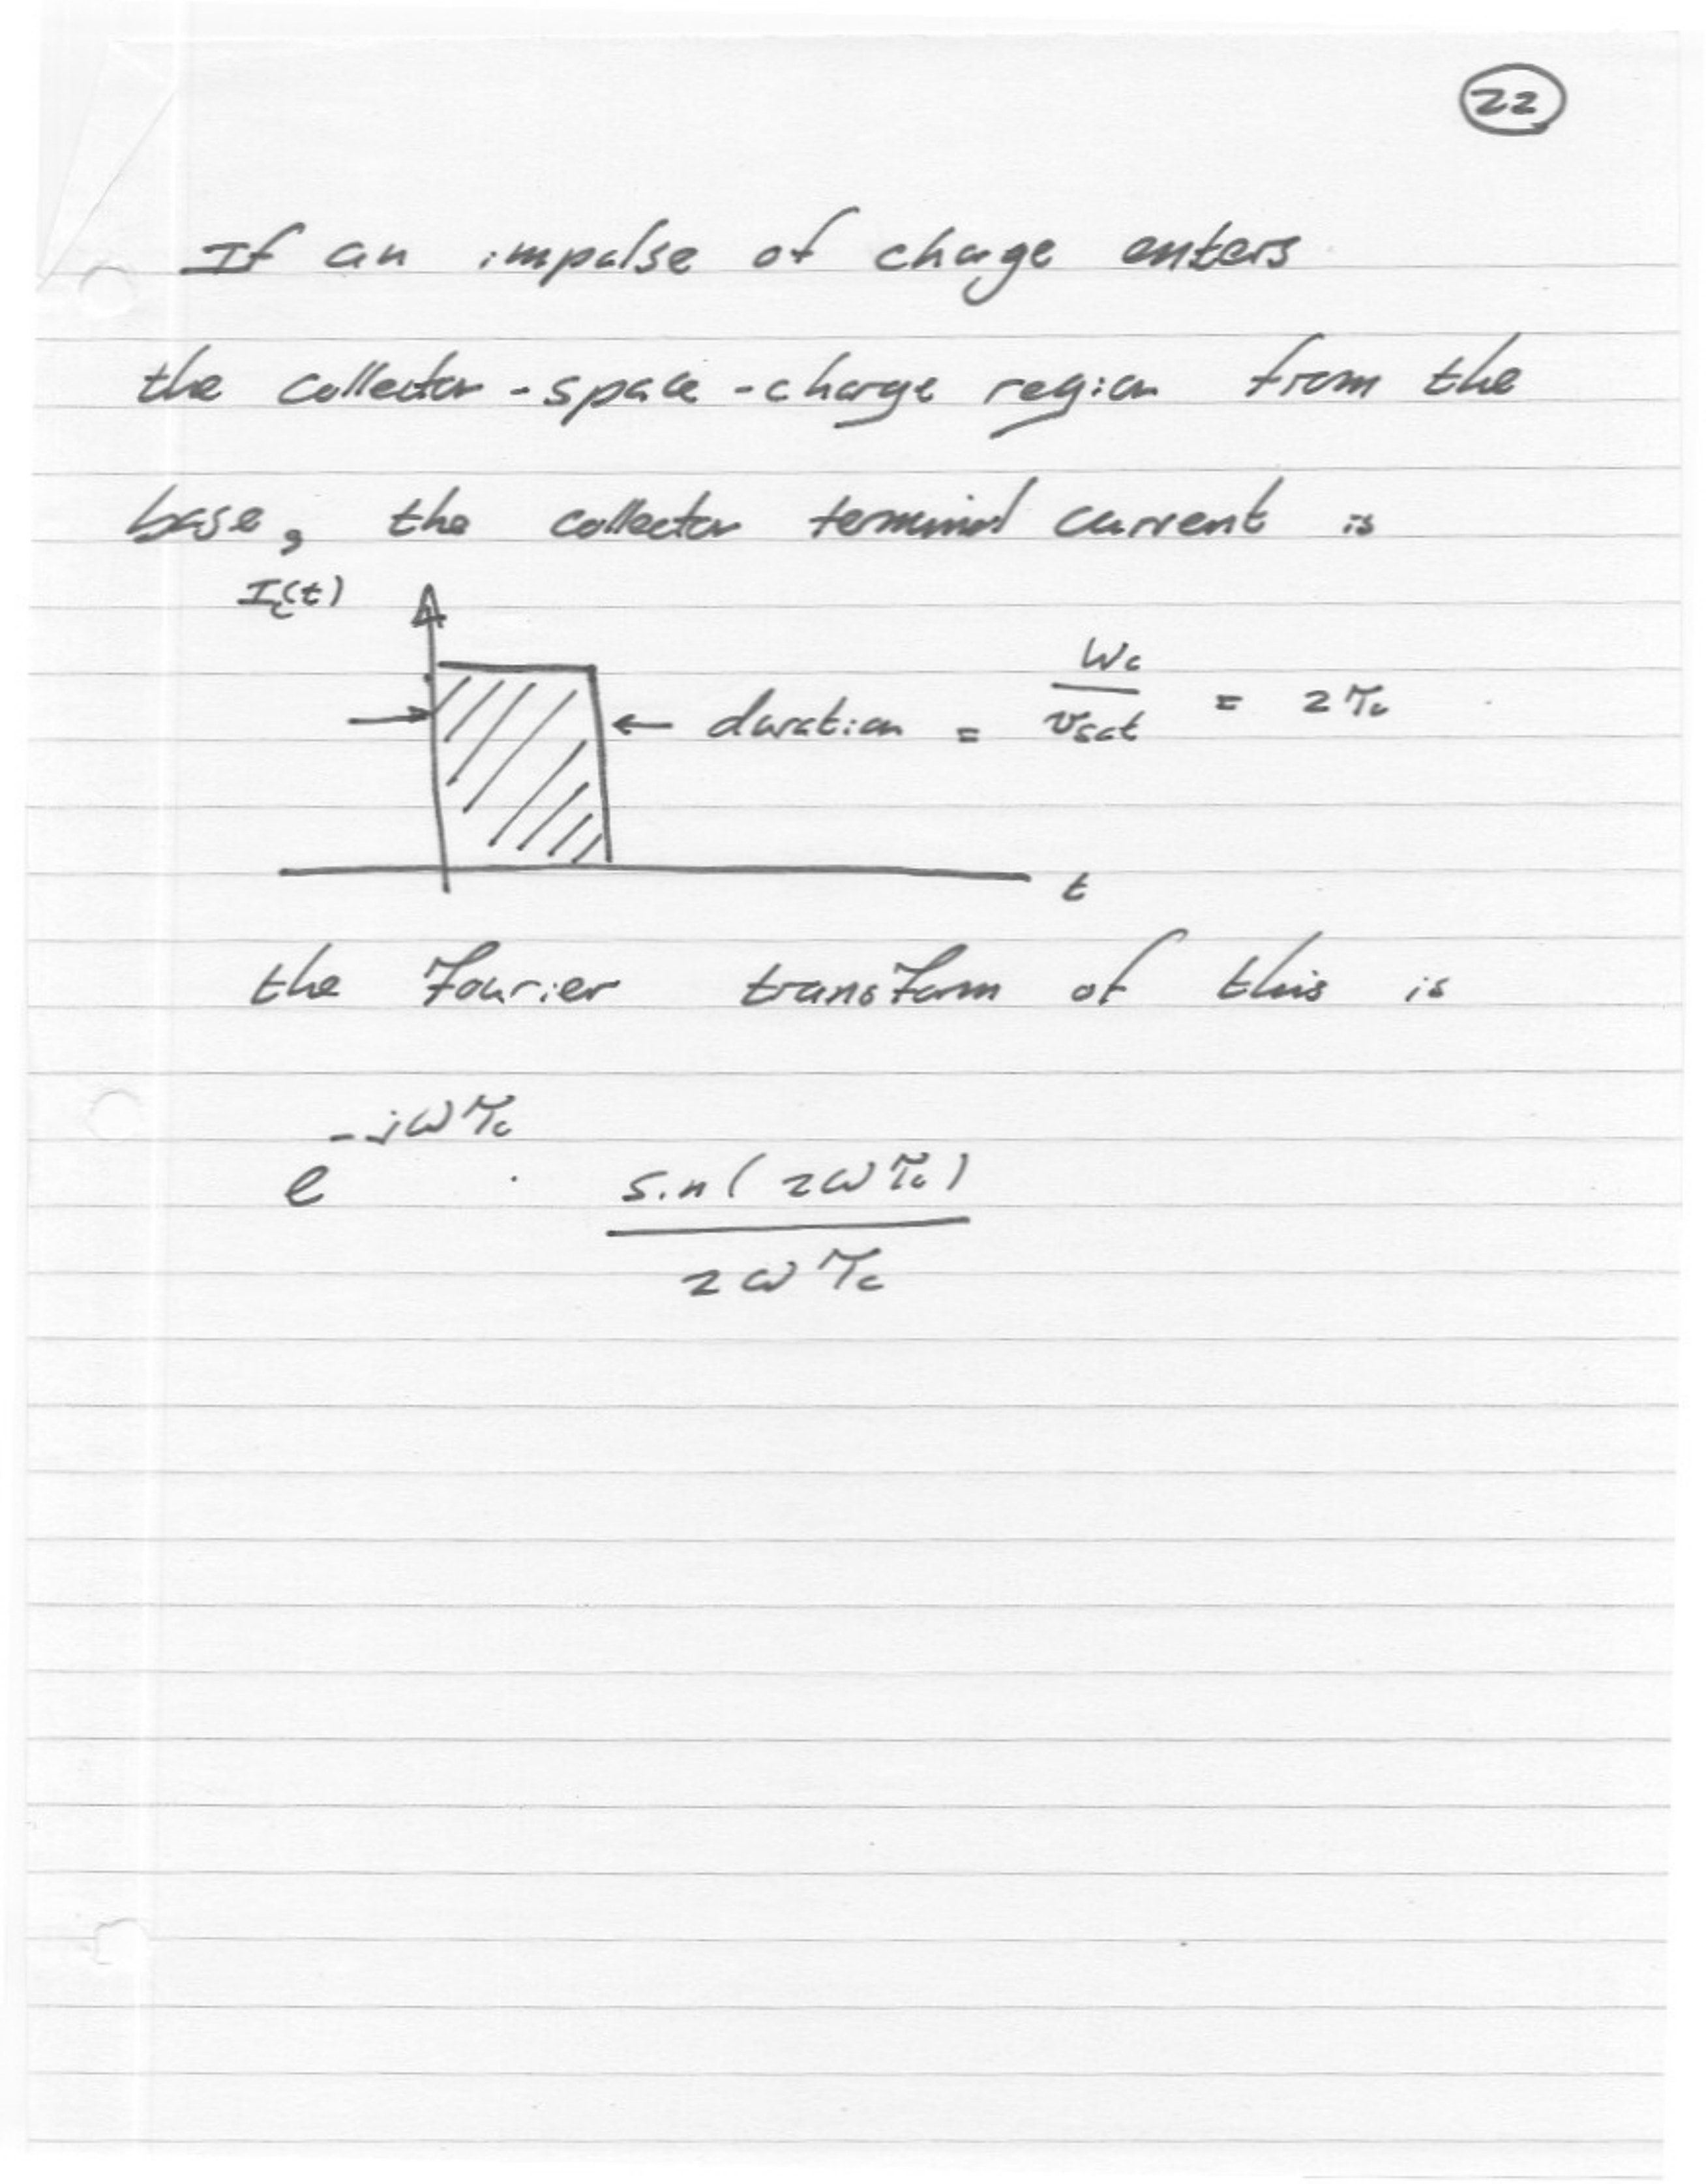 22
If an impulse of charge enters
the collector-space-charge region from the
base, the collector terminal current is
I_c(t)
duration = W_c / v_sat = 2τ_c
t
the Fourier transform of this is
e^{-jωτ_c} · sin(2ωτ_c) / 2ωτ_c